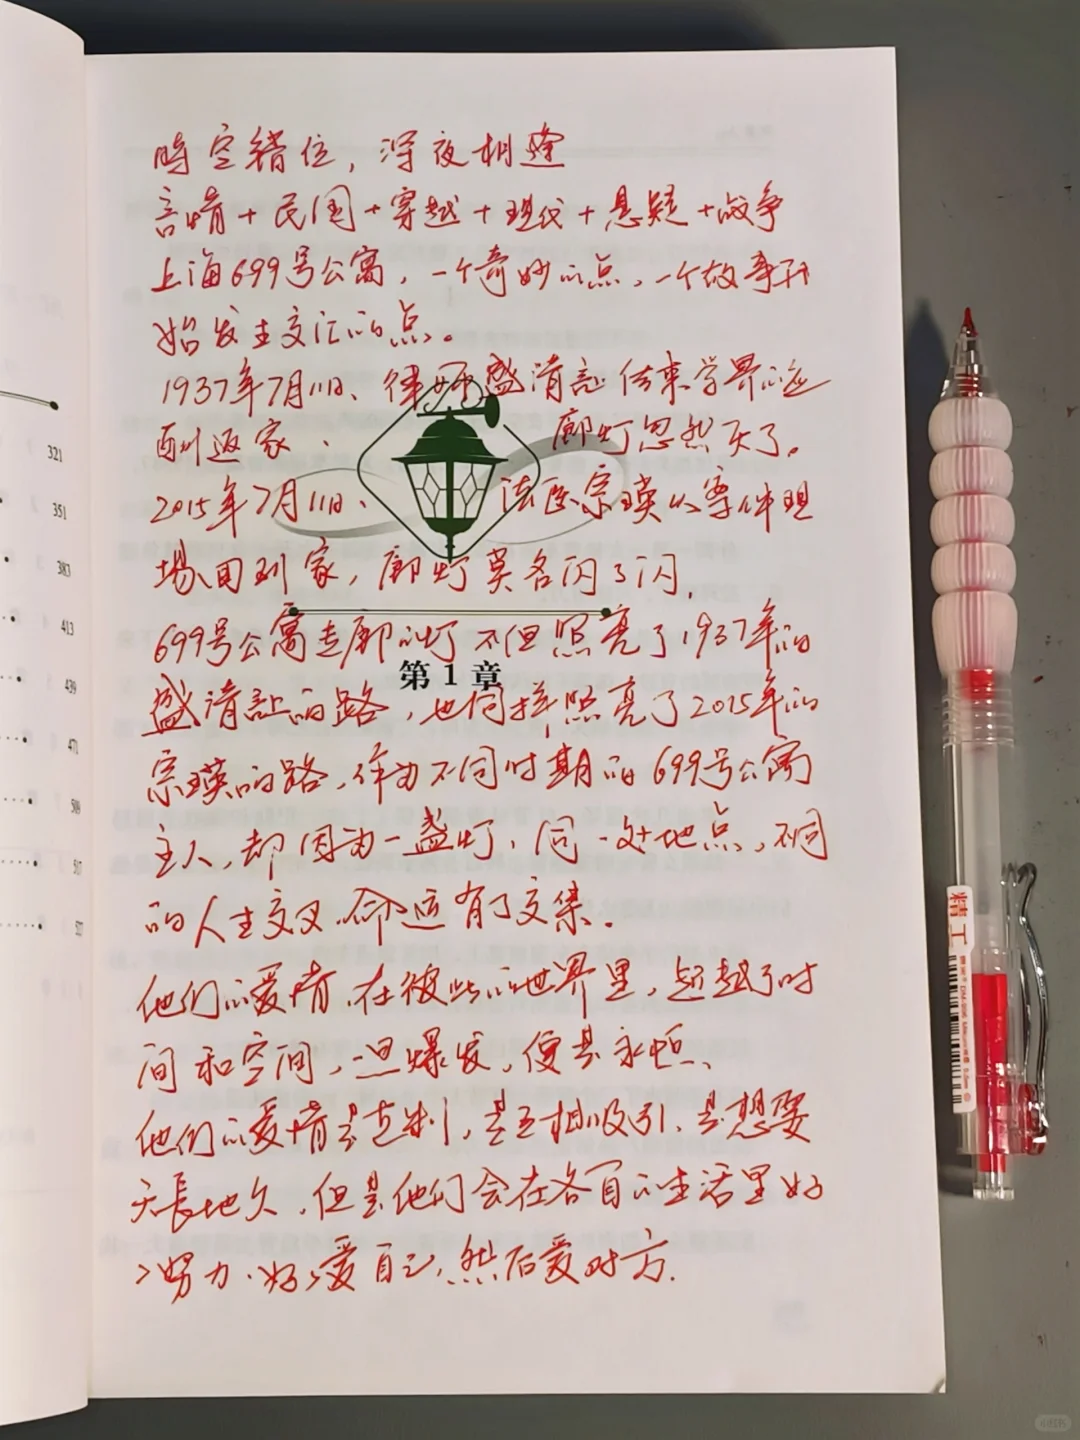 時空錯位，深夜相逢
言情+民国+穿越+現代+悬疑+战争
上海699号公寓，一个奇妙的点，一个故事开
始发生交汇的点。
1937年7月11日、律师盛清讓结束学界的应
酬返家、廊灯忽然灭了。
2015年7月11日、法医宗瑛从案件現
場回到家，廊灯莫名闪了闪，
699号公寓走廊的灯不但照亮了1937年的
第1章
盛清讓的路，也同样照亮了2015年的
宗瑛的路，作为不同时期的699号公寓
主人，却因为一盏灯，同一处地点，不同
的人生交叉，命运有了交集。
他们的爱情，在彼此的世界里，超越了时
间和空间，一旦爆发，便是永恒、
他们的爱情是克制，是互相吸引，是想要
天長地久，但是他们会在各自的生活里好
好努力，好好爱自己，然后爱对方.
321
351
383
413
439
471
509
517
精工